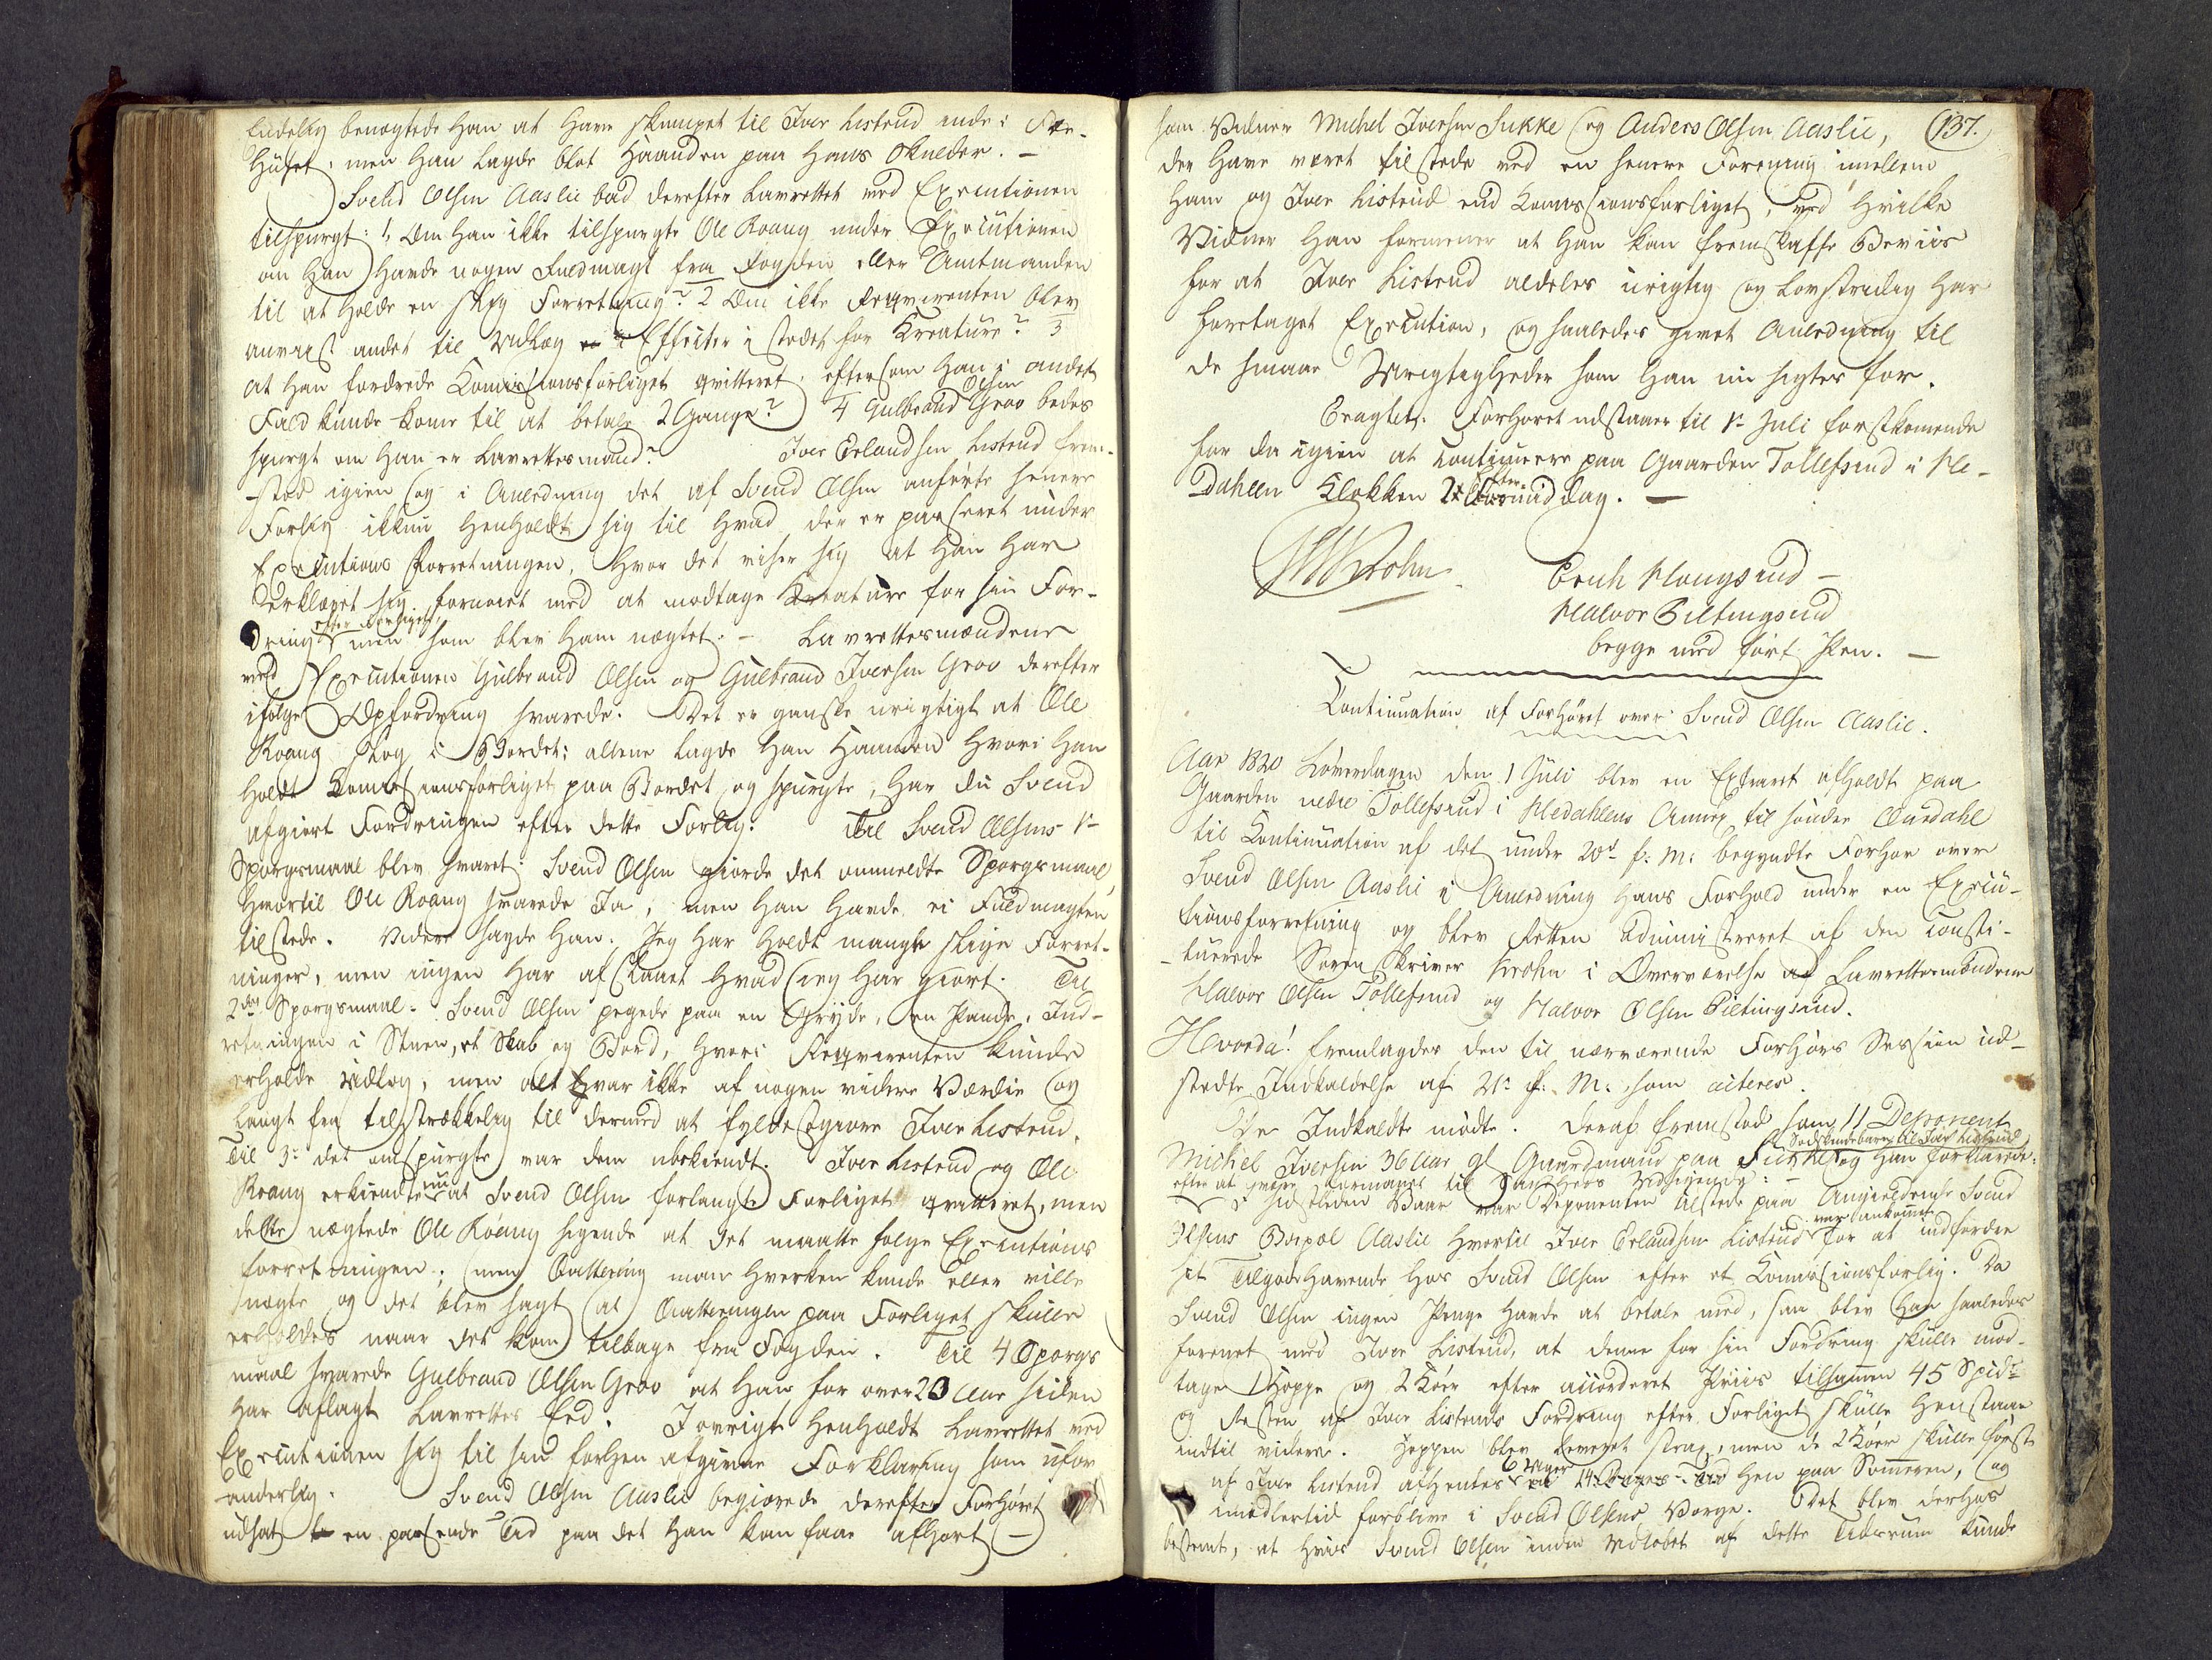 Endelig benægtede han at have skumpet til Iver Listrud inde i Fæ-
Huset; men han lagde blot Haanden paa hans Skulder. –
Svend Olsen Aaslie bad derefter Lavrettet ved Executionen
tilspurgt: 1, Om han ikke tilspurgte Ole Roang under Executionen
om han havde nogen Fuldmagt fra Fogden eller Amtmanden
til at holde en slig Forretning? 2 Om ikke Reqvirenten blev
anviist andet til Udlæg i Effecter i stedet for Kreature? 3
at han fordrede Commissionsforliget qvitteret, eftersom han i andet
Fald kunde komme til at betale 2 Gange? 4 Gulbrand Olsen Grøv bedes
spurgt om han er Lavrettesmand? Iver Erlandsen Listrud frem-
stod igien og i Anledning det af Svend Olsen anførte senere
Forlig ikkun henholdt sig til hvad der er passeret under
Executions Forretningen, hvor det viser sig at han har
erklæret sig fornøiet med at modtage Kreature for sin For-
dring efter Forliget men som blev ham nægtet. – Lavrettesmændene
ved Executionen Gulbrand Olsen og Gulbrand Iversen Grøv derefter
ifølge Opfordring svarede: Det er ganske urigtigt at Ole
Roang slog i Bordet; allene lagde han Haanden hvori han
holdt Commissionsforliget paa Bordet og spurgte, har du Svend
afgiort Fordringen efter dette Forlig. Til Svend Olsens 1ste
Spørgsmaal blev svaret: Svend Olsen giorde det anmeldte Spørgsmaal,
hvortil Ole Roang svarede Ja, men han havde ei Fuldmagten
tilstede. Videre sagde han: Jeg har holdt mange slige Forret-
ninger, men ingen har afskaaret hvad jeg har giort. Til
2det Spørgsmaal: Svend Olsen pegede paa en Gryde, en Pande, Ind-
retningen i Stuen, et Skab og Bord, hvori Reqvirenten kunde
erholde Udlæg, men alt var ikke af nogen videre Værdie og
langt fra tilstrækkelig til dermed at fyldestgiøre Iver Listrud.
Til 3die det omspurgte var dem ubekiendt. Iver Listrud og Ole
Roang erkiendte nu at Svend Olsen forlangte Forliget qvitteret, men
dette nægtede Ole Roang sigende at det maatte følge Executions
forretningen; men Qvittering man hverken kunde eller ville
nægte og det blev sagt at Qvitteringen paa Forliget skulle
erholdes naar det kom tilbage fra Fogden. Til 4 Spørgs
maal svarede Gulbrand Olsen Grøv at han for over 20 Aar siden
har aflagt Lavrettes Eed. I øvrigt henholdt Lavrettet ved
Executionen sig til sin forhen afgivne Forklaring som ufor
anderlig. Svend Olsen Aaslie begiærede derefter Forhøret
udsat en passende Tid paa det han kan faae afhørt
som Vidner Michel Iversen Sukke og Anders Olsen Aaslie, 137.
der have været tilstede ved en senere Forening imellem
ham og Iver Listrud end Commissionsforliget, ved hvilke
Vidner han formener at han kan fremskaffe Beviis
for at Iver Listrud aldeles urigtig og lovstridig har
foretaget Execution, og saaledes givet Anledning til
de smaae Urigtigheder som han nu sigtes for.
Eragtet: Forhøret udstaaer til 1ste Juli førstkomende
for da igien at continuere paa Gaarden Tollefsrud i He-
dahlen Klokken 2 Eftermiddag. –
Krohn
Erich Haugsrud –
Halvor Piltingsrud
begge med ført Pen. –
Continuation af Forhøret over Svend Olsen Aaslie.
Aar 1820 Løverdagen den 1 Juli blev en Extraret afholdt paa
Gaarden nedre Tollefsrud i Hedahlens Annex til søndre Aurdahl
til Continuation af det under 20de f: M: begyndte Forhør over
Svend Olsen Aaslie i Anledning hans Forhold under en Execu-
tionsforretning og blev Retten administreret af den consti-
tuerede Sorenskriver Krohn i Overværelse af Lavrettesmændene
Halvor Olsen Tollefsrud og Halvor Olsen Piltingsrud.
Hvorda! fremlagdes den til nærværende Forhørs Session ud-
stædte Indkaldelse af 21de f: M: som acteres.
De Indkaldte mødte. Deraf fremstod som 11 Deponent
Michel Iversen 36 Aar gl Gaardmand paa Sukke Sødskendebarn til Iver Listrud og han forklarede:
efter at være formanet til Sandheds Udsigende: –
I sidstleden Vaar var Deponenten tilstede paa Angieldende Svend
Olsens Bopæl Aaslie hvortil Iver Erlandsen Listrud var ankommet for at indfordre
sit Tilgodehavende hos Svend Olsen efter et Commissionsforlig. Da
Svend Olsen ingen Penge havde at betale med, saa blev han saaledes
forenet med Iver Listrud, at denne for sin Fordring skulle mod-
tage 1 Hoppe og 2 Køer efter accorderet Priis tilsammen 45 Spd
og Resten af Iver Listruds Fordring efter Forliget skulle henstaae
indtil videre. Hoppen blev leveret strax, men de 2 Køer skulle først
af Iver Listrud afhentes 6 Uger hen paa Sommeren, og
imidlertid forblive i Svend Olsens Værge. Det blev derhos
bestemt, at hvis Svend Olsen inden Udløbet af dette Tidsrum kunde